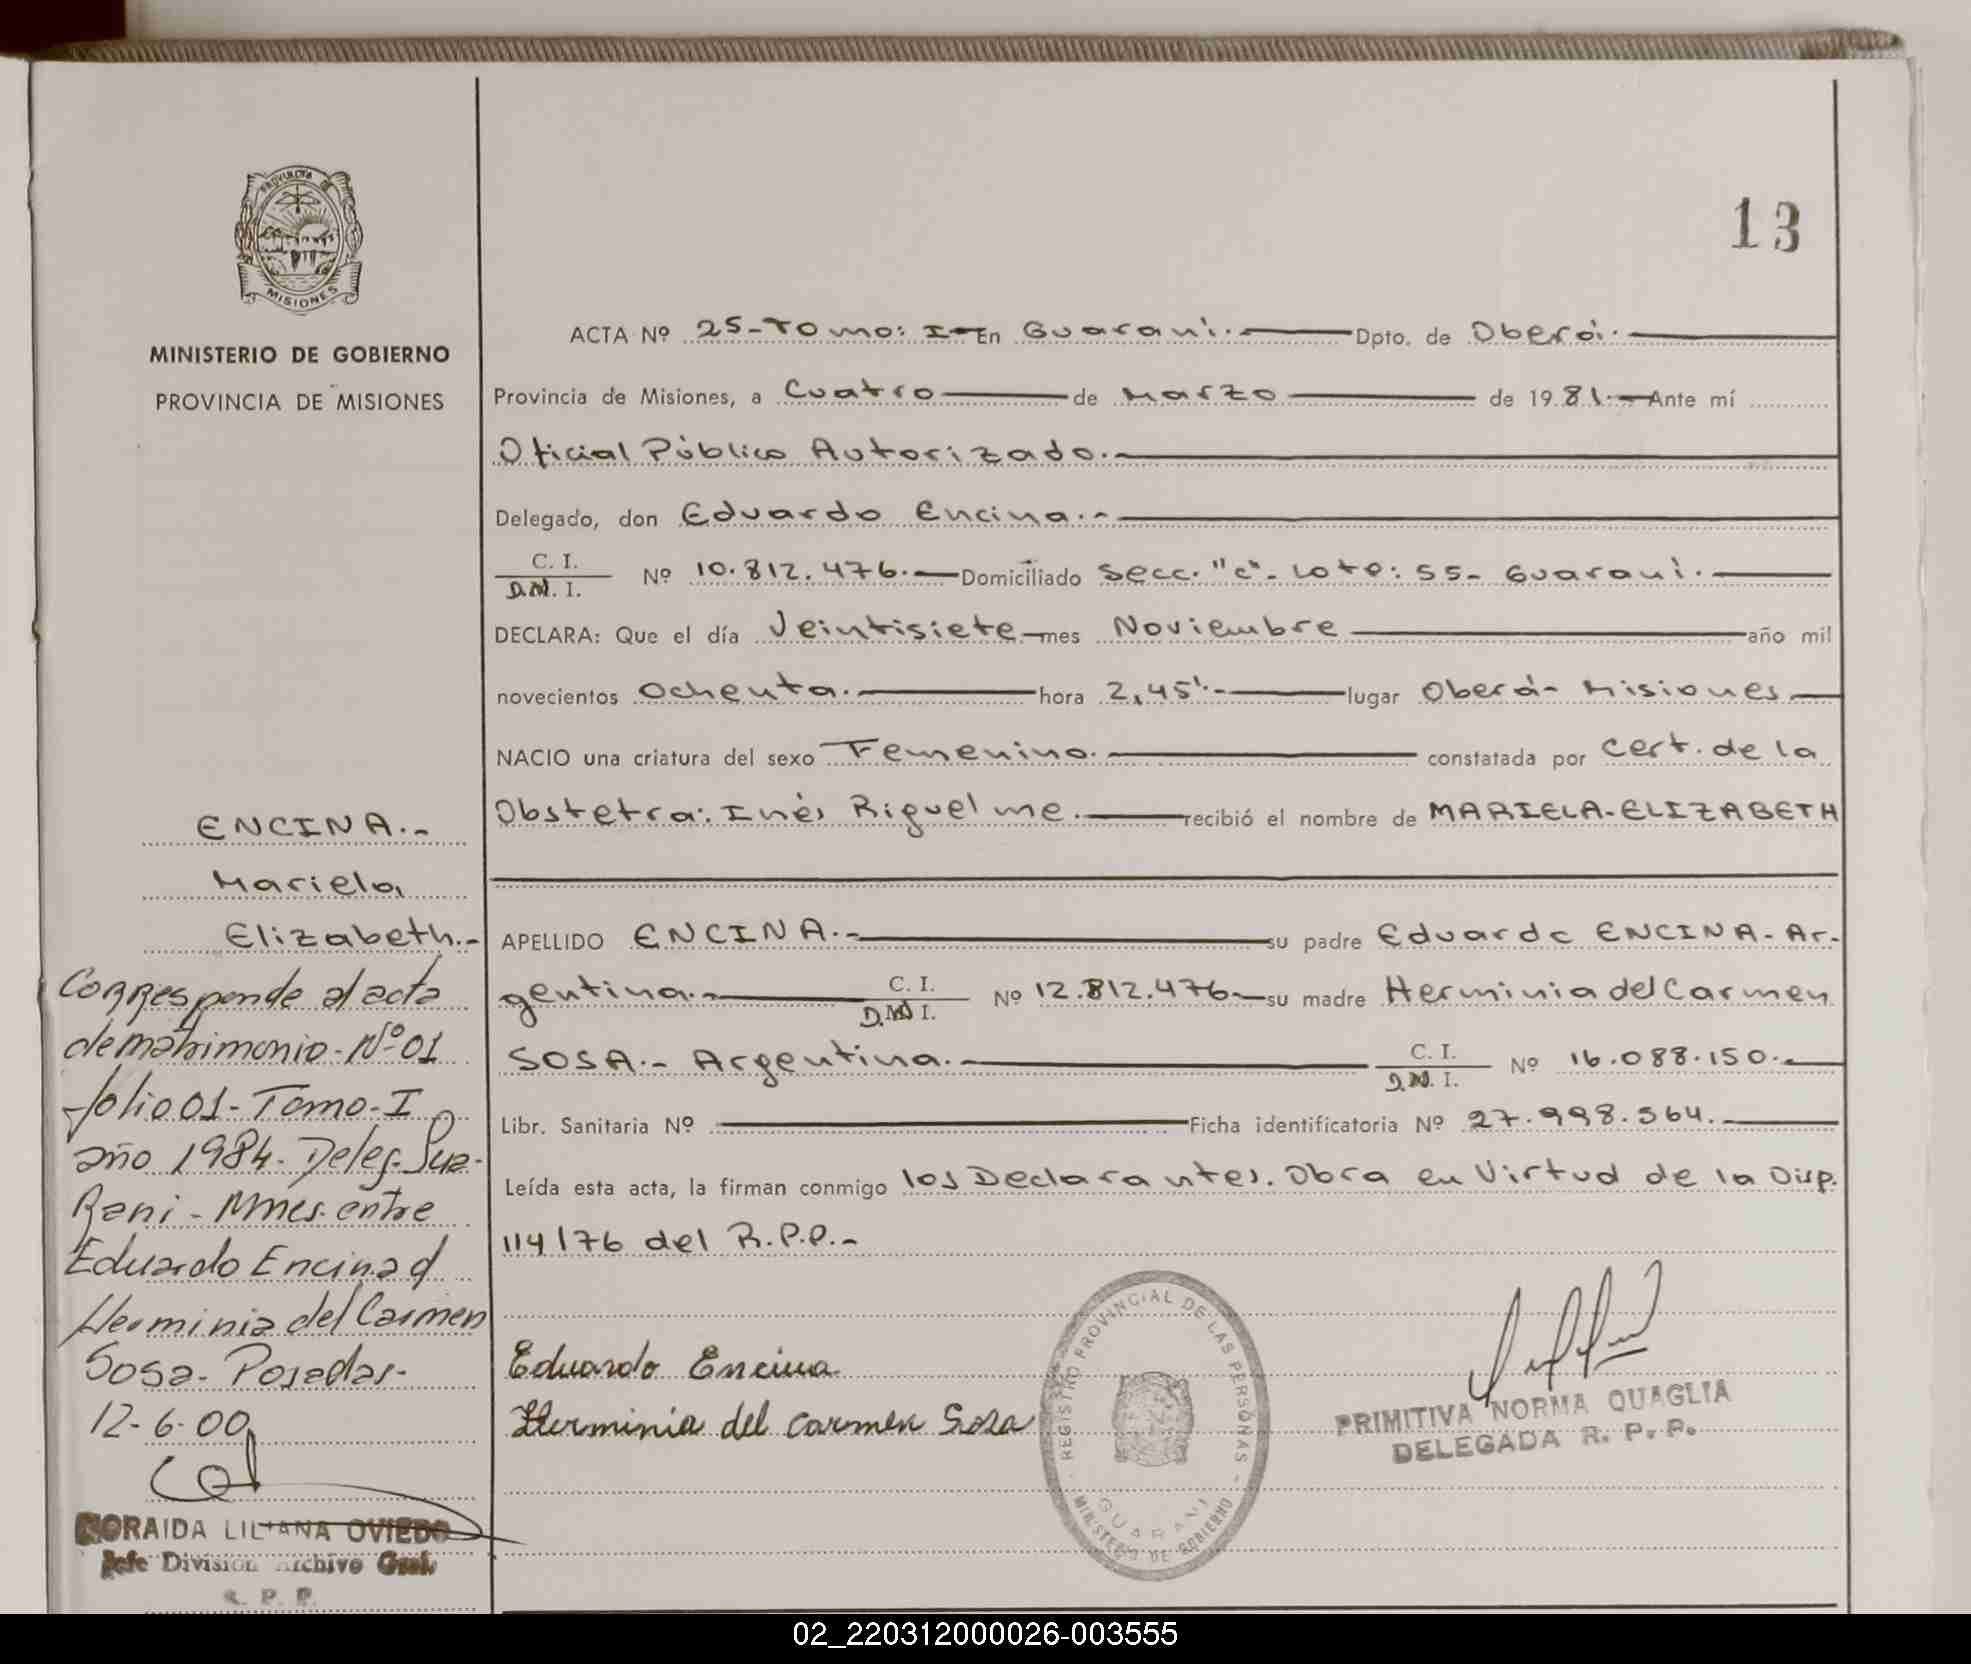 PROVINCIA DE
MISIONES
MINISTERIO DE GOBIERNO
PROVINCIA DE MISIONES
13
ACTA Nº 25-Tomo: I-En Guaraní.- Dpto. de Oberá.-
Provincia de Misiones, a Cuatro de Marzo de 1981.- Ante mí
Oficial Público Autorizado.-
Delegado, don Eduardo Encina.-
C. I.
D.N. I. Nº 10.812.476.- Domiciliado Secc. "C"- Lote: 55- Guaraní.-
DECLARA: Que el día Veintisiete mes Noviembre año mil
novecientos Ochenta.- hora 2,45'.- lugar Oberá- Misiones
NACIO una criatura del sexo Femenino.- constatada por Cert. de la
Obstetra: Inés Riquelme.- recibió el nombre de MARIELA-ELIZABETH
APELLIDO ENCINA.- su padre Eduardo ENCINA- Ar-
gentina.- C. I.
D.N. I. Nº 12.812.476- su madre Herminia del Carmen
SOSA.- Argentina.- C. I.
D.N. I. Nº 16.088.150.-
Libr. Sanitaria Nº Ficha identificatoria Nº 27.998.564.-
Leída esta acta, la firman conmigo los Declarantes. Obra en Virtud de la Disp.
114/76 del R.P.P.-
Eduardo Encina
Herminia del Carmen Sosa
REGISTRO PROVINCIAL DE LAS PERSONAS
GUARANI
MINISTERIO DE GOBIERNO
PRIMITIVA NORMA QUAGLIA
DELEGADA R. P. P.
ENCINA.-
Mariela
Elizabeth.-
Corresponde al acta
de matrimonio- Nº 01
folio 01- Tomo- I
año 1984- Deleg. Gua-
Rani- Mnes. entre
Eduardo Encina y
Herminia del Carmen
Sosa- Posadas-
12-6-00
ZORAIDA LILIANA OVIEDO
Jefe División Archivo Gral.
R. P. P.
02_220312000026-003555